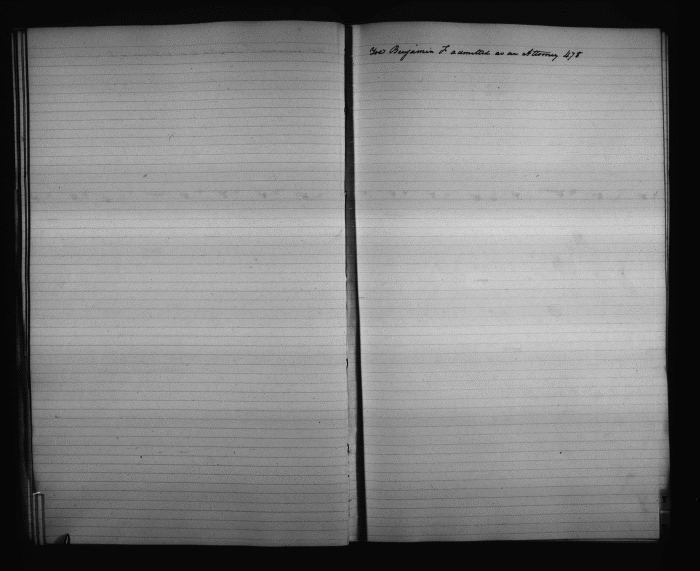 Benjamin F admitted as an Attorney 478